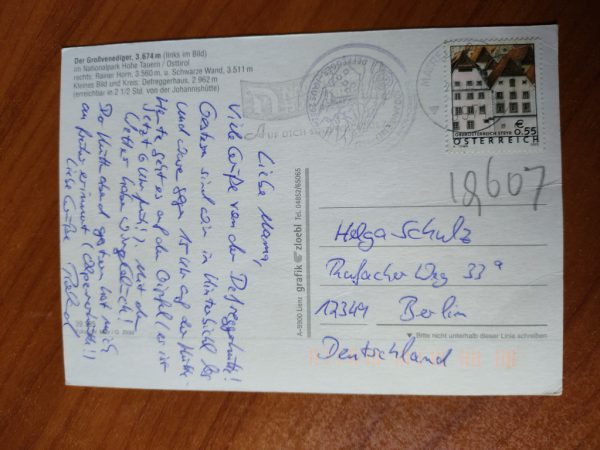 Der Großvenediger, 3.674 m (links im Bild)
im Nationalpark Hohe Tauern / Osttirol
rechts: Rainer Horn, 3.560 m. u. Schwarze Wand, 3.511 m
Kleines Bild und Kreis: Defreggerhaus, 2.962 m
(erreichbar in 2 1/2 Std. von der Johannishütte)
Liebe Mama,
Viele Grüße von der Defreggerhütte!
Gestern sind wir in Hinterbichl los
und waren gegen 15 Uhr auf der Hütte.
Heute geht es auf den Gipfel (es ist
jetzt 6 Uhr früh!). Mit dem
Wetter haben wir Glück.
Der Hüttenabend gestern hat mich
an früher erinnert
Liebe Grüße
A-9900 Lienz grafik zloebl Tel. 04852/65065
AUF DICH
OBERÖSTERREICH STEYR
€ 0.55
ÖSTERREICH
12607
Helga Schulz
33a
12349 Berlin
Bitte nicht unterhalb dieser Linie schreiben
Deutschland